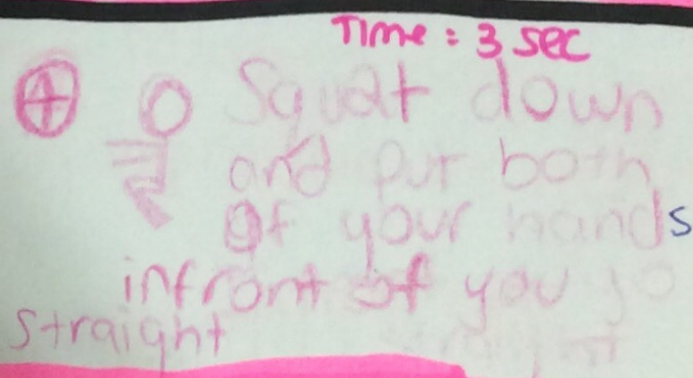 Time : 3 sec
4 Squat down
and put both
of your hands
infront of you so
straight